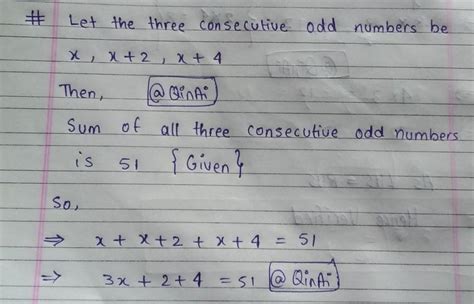 # Let the three consecutive odd numbers be
x , x + 2 , x + 4
Then, @QinAi
Sum of all three consecutive odd numbers
is 51 { Given }
So,
⇒ x + x + 2 + x + 4 = 51
⇒ 3x + 2 + 4 = 51 @QinAi